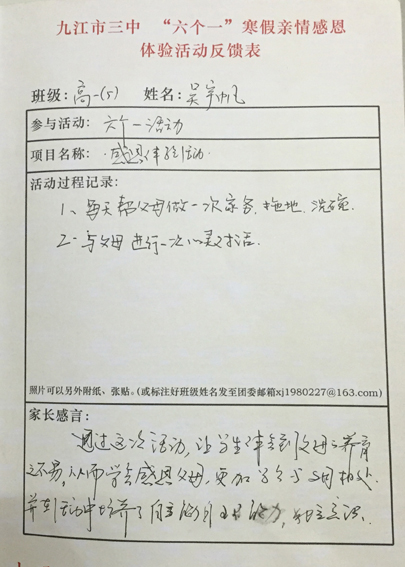 九江市三中 “六个一”寒假亲情感恩
体验活动反馈表
班级:高一(5) 姓名:吴宇帆
参与活动: 六个一活动
项目名称: 感恩体验活动.
活动过程记录:
1、每天帮父母做一次家务,拖地,洗碗.
2. 与父母进行一次心灵对话.
照片可以另外附纸、张贴。(或标注好班级姓名发至团委邮箱xj1980227@163.com)
家长感言:
通过这次活动,让学生体会到父母之养育
之不易,从而学会感恩父母,更加学会与 相处.
并在活动中培养了自主 能力,独立意识.